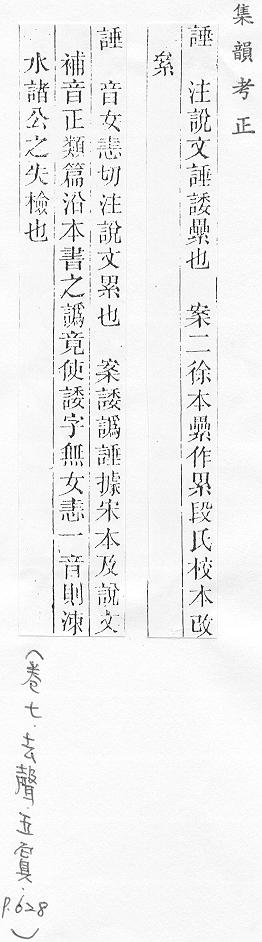 集韻考正
諈　注說文諈諉纍也　案二徐本纍作累段氏校本改
絫
諈　音女恚切注說文累也　案諉譌諈據宋本及說文
補音正類篇沿本書之譌竟使諉字無女恚一音則涑
水諸公之失檢也
(卷七.去聲.五寘.P.628)